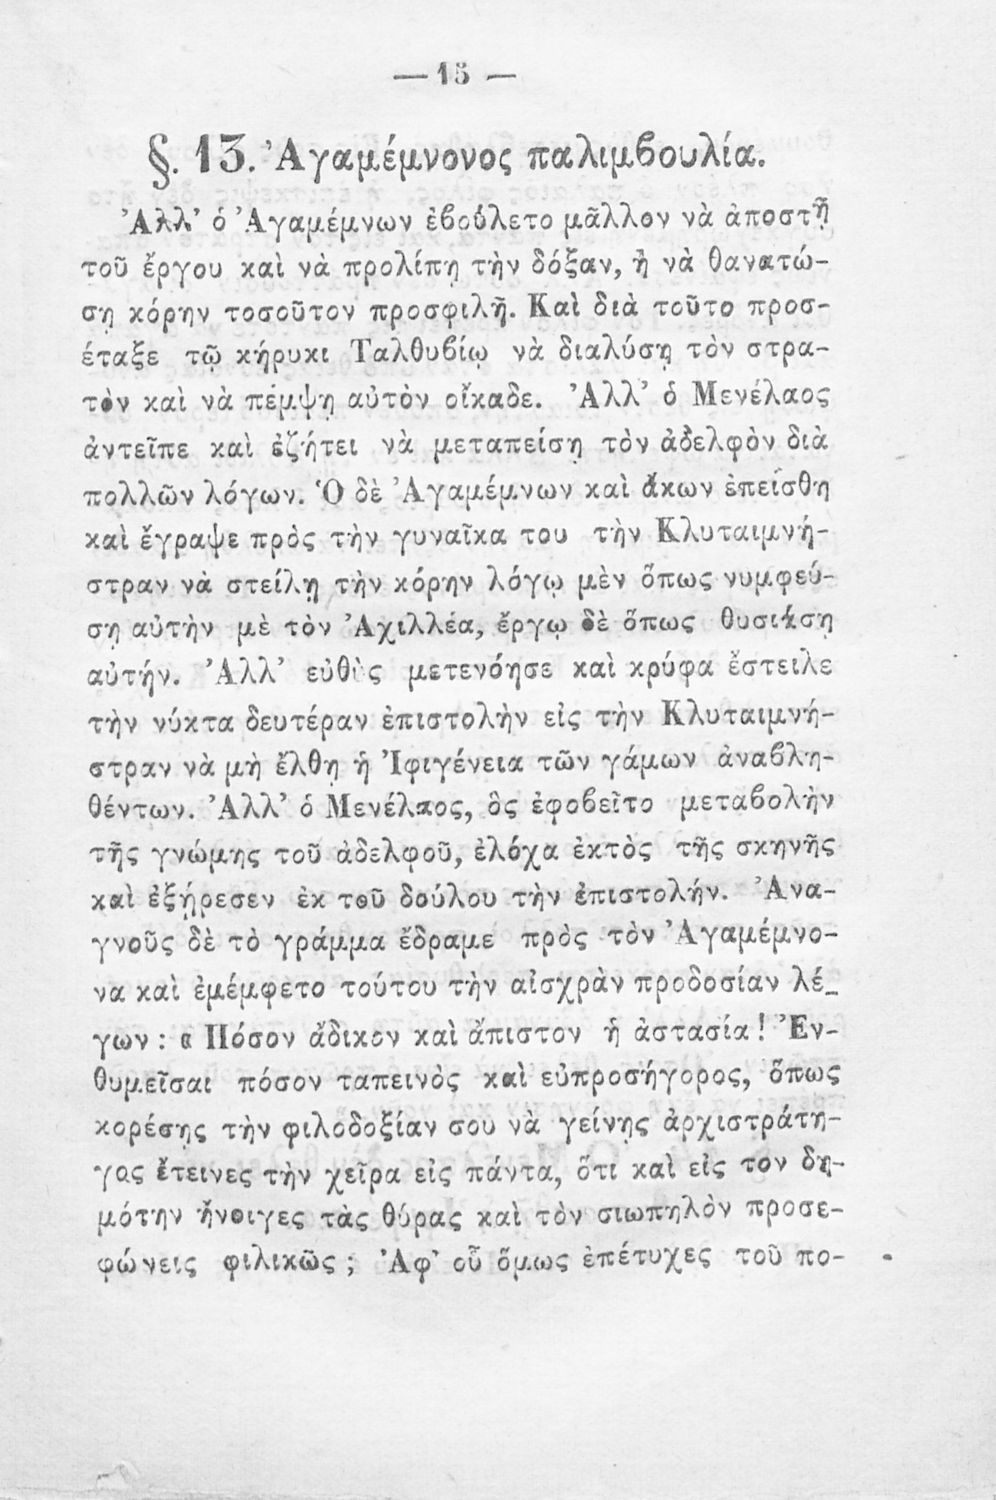 — 15 —
§. 13. Ἀγαμέμνονος παλιμβουλία.
Ἀλλ’ ὁ Ἀγαμέμνων ἐβούλετο μᾶλλον νὰ ἀποστῇ
τοῦ ἔργου καὶ νὰ προλίπῃ τὴν δόξαν, ἢ νὰ θανατώ-
σῃ κόρην τοσοῦτον προσφιλῆ. Καὶ διὰ τοῦτο προσ-
έταξε τῷ κήρυκι Ταλθυβίῳ νὰ διαλύσῃ τὸν στρα-
τὸν καὶ νὰ πέμψῃ αὐτὸν οἴκαδε. Ἀλλ’ ὁ Μενέλαος
ἀντεῖπε καὶ ἐζήτει νὰ μεταπείσῃ τὸν ἀδελφὸν διὰ
πολλῶν λόγων. Ὁ δὲ Ἀγαμέμνων καὶ ἄκων ἐπείσθη
καὶ ἔγραψε πρὸς τὴν γυναῖκα του τὴν Κλυταιμνή-
στραν νὰ στείλῃ τὴν κόρην λόγῳ μὲν ὅπως νυμφεύ-
σῃ αὐτὴν μὲ τὸν Ἀχιλλέα, ἔργῳ δὲ ὅπως θυσιάσῃ
αὐτήν. Ἀλλ’ εὐθὺς μετενόησε καὶ κρύφα ἔστειλε
τὴν νύκτα δευτέραν ἐπιστολὴν εἰς τὴν Κλυταιμνή-
στραν νὰ μὴ ἔλθῃ ἡ Ἰφιγένεια τῶν γάμων ἀναβλη-
θέντων. Ἀλλ’ ὁ Μενέλαος, ὃς ἐφοβεῖτο μεταβολὴν
τῆς γνώμης τοῦ ἀδελφοῦ, ἐλόχα ἐκτὸς τῆς σκηνῆς
καὶ ἐξῄρεσεν ἐκ τοῦ δούλου τὴν ἐπιστολήν. Ἀνα-
γνοῦς δὲ τὸ γράμμα ἔδραμε πρὸς τὸν Ἀγαμέμνο-
να καὶ ἐμέμφετο τούτου τὴν αἰσχρὰν προδοσίαν λέ-
γων : « Πόσον ἄδικον καὶ ἄπιστον ἡ ἀστασία! Ἐν-
θυμεῖσαι πόσον ταπεινὸς καὶ εὐπροσήγορος, ὅπως
κορέσῃς τὴν φιλοδοξίαν σου νὰ γείνῃς ἀρχιστράτη-
γος ἔτεινες τὴν χεῖρα εἰς πάντα, ὅτι καὶ εἰς τον δη-
μότην ἤνοιγες τὰς θύρας καὶ τὸν σιωπηλὸν προσε-
φώνεις φιλικῶς ; Ἀφ’ οὗ ὅμως ἐπέτυχες τοῦ πο-